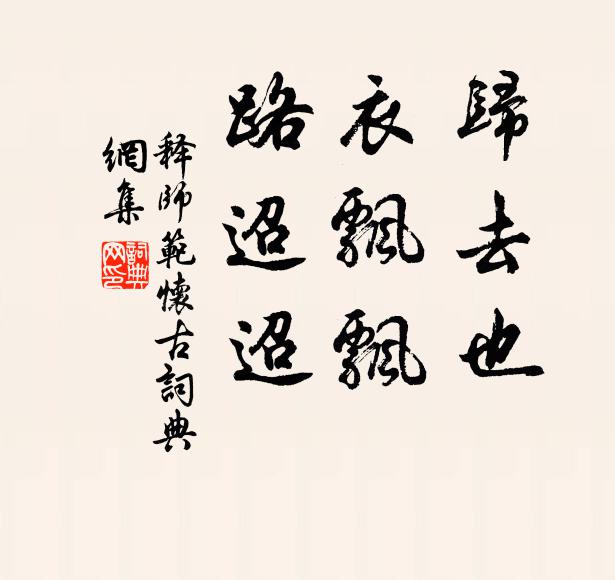 歸去也
衣飄飄
路迢迢
释師範懷古詞典
網集
詞典網印